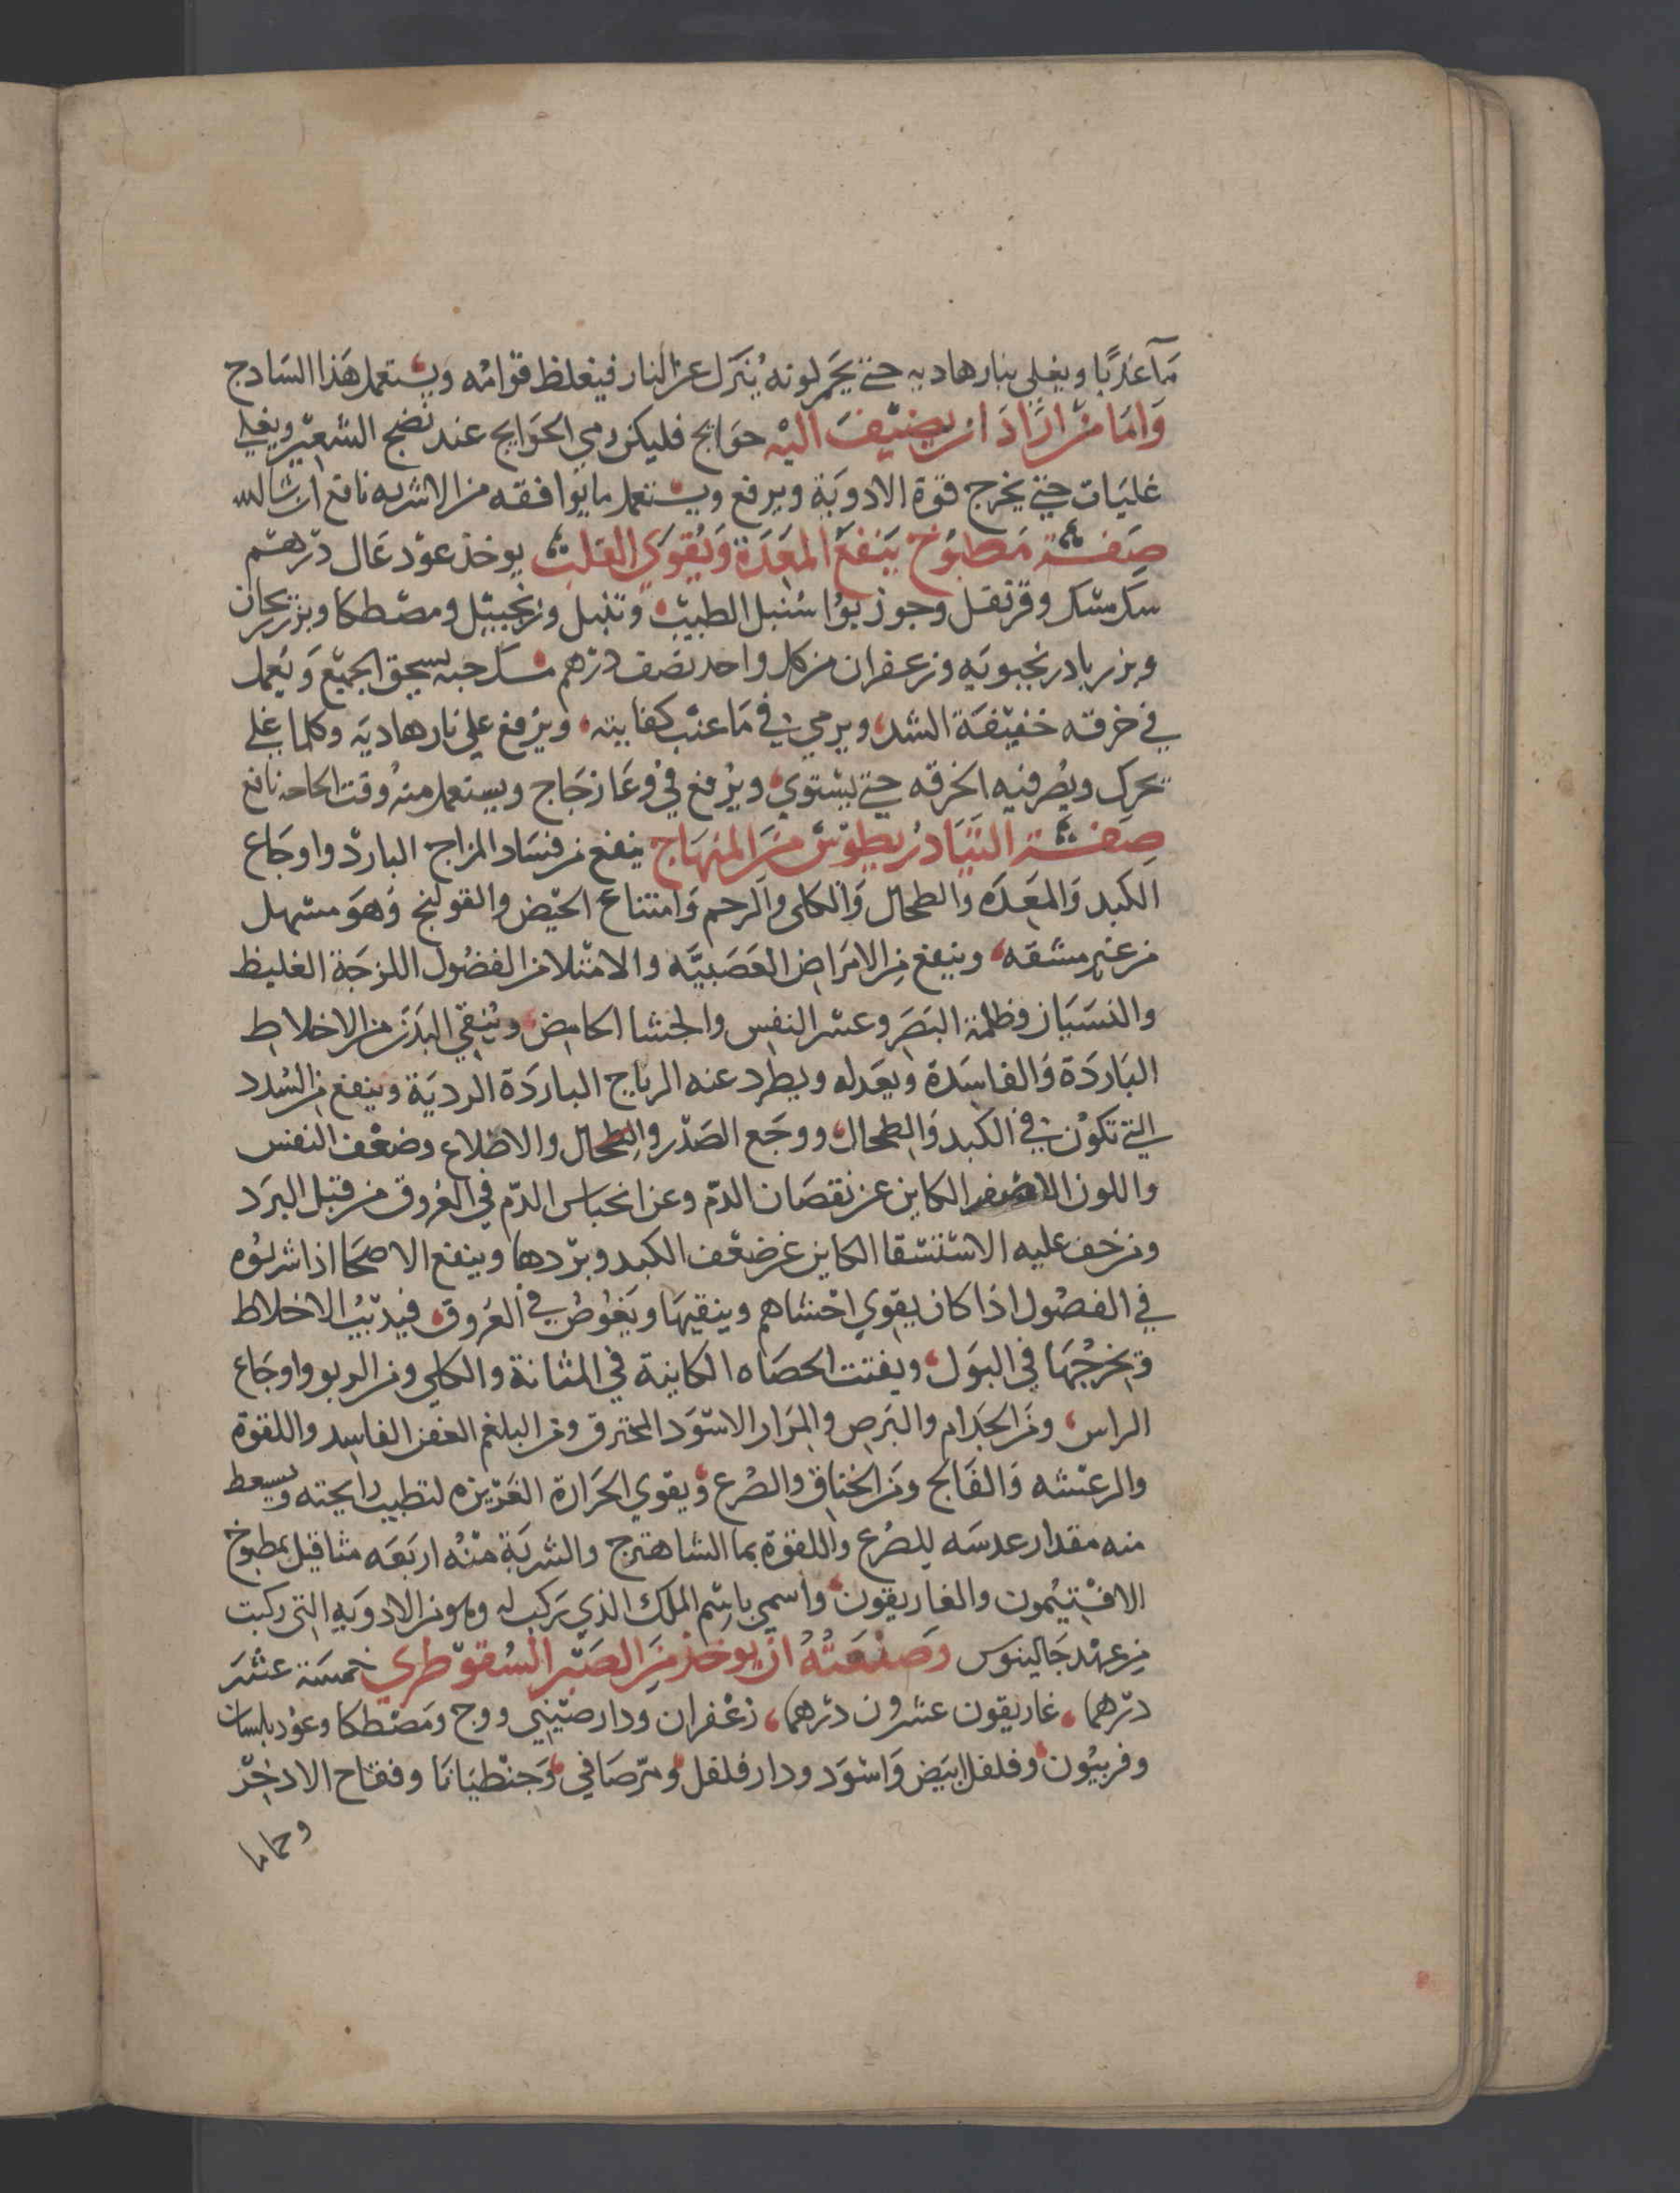 مآ عذبًا ويغلي بنار هاديه حتي يحمر لونه ينزل عن النار فيغلظ قوامه ويستعمل هذا السادج
وَامَا من ارَادَ ان يضيف اليه حوايج فليكن رمي الحوايج عند نضج الشعير ويغلي
غليات حتي يخرج قوة الادوية ويرفع ويستعمل ما يوافقه من الاشربه نافع ان شا الله
صفة مَطبُوخ يَنفعُ المعَدَة وَيُقوي القلب يوخذ عود عَال درهم
سك مسك وقرنفل وجوز بوا سنبل الطيب وتنبل وزنجبيل ومصطكا وبزر ريحان
وبزر بادرنجبويه وزعفران من كل واحد نصف درهم مسك حبه يسحق الجميع وَيعمل
في خرقه خفيفة الشد ويرمي في مَا عنب كفايته ويرفع علي نار هاديَه وكلما غلي
تحرك ويصر فيه الخرقه حتي يستوي ويرفع في وعَا زجَاج ويستعمل منه وقت الحاجه نافع
صِفة التيَادريطوس منَ المنهَاج ينفع من فسَاد المزاج البارد واوجَاع
الكبد وَالمعَدَه والطحال وَالكلى والرحم وَامتناع الحيض والقولنج وَهوَ مسهل
من غير مشقه وينفع من الامرَاض العَصَبيَّه والامتلا من الفضول اللزجَة الغليظ
والنسيَان وظلمة البصَر وعسر النفس والجشا الحامض وينقي البدَن من الاخلاط
البَاردَة وَالفاسدَة ويعَدله ويطرد عنه الرياح الباردَة الرديَة وينفع من السُدد
التي تكوُن في الكبد وَالطحال ووجَع الصَدر والطحال والاضلاع وضعف النفس
واللون الاصفر الكاين عن نقصَان الدم وعن انحباس الدم في العُروق من قبل البرَد
ومن خف عليه الاستسقا الكاين عن ضعف الكبد وبردها وينفع الاصحَا اذا شربُوه
في الفصُول اذا كان يقوي احشاهم وينقيهَا ويَغوُص في العُروق فيدبيُ الاخلاط
وتخرجُهَا في البوَل ويفتت الحصَاه الكاينة في المثانة والكلي ومن الربو واوجَاع
الراس ومَن الجدام والبَرص والمرَار الاسوَد المحترق ومن البلغم العفن الفاسد واللقوة
والرعشه وَالفَالج ومَن الخناق والصرع ويقوي الحرَارة الغَريزه لتطييب رايحته ويسعط
منه مقدار عدسَه للصُرع واللقوة بما الشاهترج والشربَة منُه اربَعَه مثاقيل بمطبوخ
الافتيُمون والغاريقون واسمي باسم الملك الذي تركب له وهو من الادويَه التي ركبت
من عهد جَالينوس وصَنعَتُهُ ان يوخذ منَ الصَبر السُقوطري خمسَة عشرَ
درهما غاريقون عشرون درهما زعفران ودارصيني ووج ومَصطكا وعوُد بلسان
وفربيُون وفلفل ابيَض وَاسوَد ودارفلفل ومر صَافي وَجنطيَانَا وفقاح الادخر
وحماما